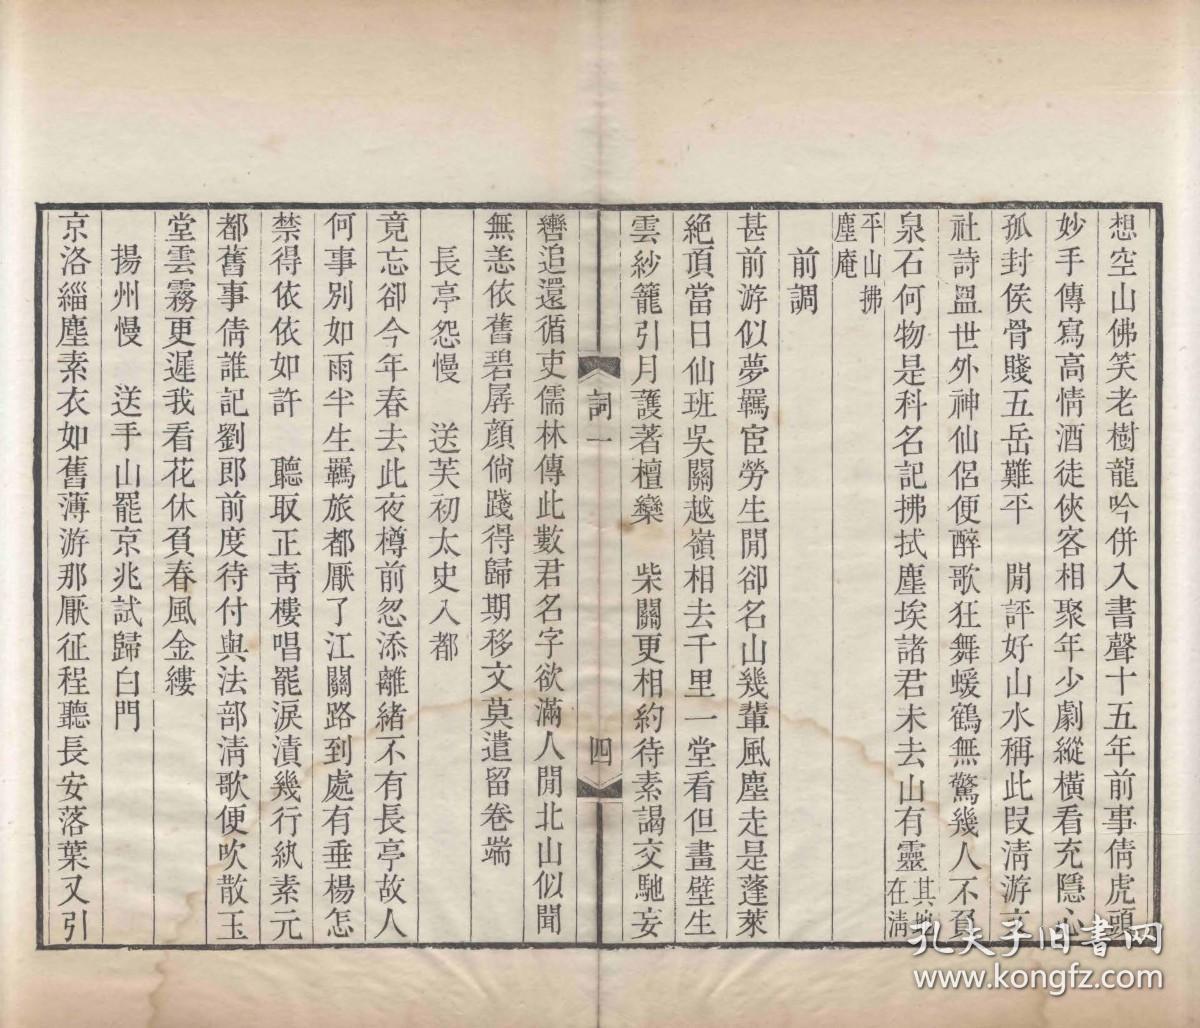 想空山佛笑老樹龍吟併入書聲十五年前事倩虎頭
妙手傳寫高情酒徒俠客相聚年少劇縱橫看充隱心
孤封侯骨賤五岳難平　閒評好山水稱此段清游
社詩盟世外神仙侶便醉歌狂舞蝯鶴無驚幾人不負
泉石何物是科名記拂拭塵埃諸君未去山有靈其地
在清
平山拂
塵庵
前調
甚前游似夢羈宦勞生閒卻名山幾輩風塵走是蓬萊
絶頂當日仙班吳關越嶺相去千里一堂看但畫壁生
雲紗籠引月護著檀欒　柴關更相約待素謁交馳妄
轡追還循吏儒林傳此數君名字欲滿人閒北山似聞
無恙依舊碧孱顏倘踐得歸期移文莫遣留卷端
長亭怨慢　送芙初太史入都
竟忘卻今年春去此夜樽前忽添離緒不有長亭故人
何事別如雨半生羈旅都厭了江關路到處有垂楊怎
禁得依依如許　聽取正青樓唱罷淚漬幾行紈素元
都舊事倩誰記劉郎前度待付與法部清歌便吹散玉
堂雲霧更遲我看花休負春風金縷
揚州慢　送手山罷京兆試歸白門
京洛緇塵素衣如舊薄游那厭征程聽長安落葉又引
詞一
四
孔夫子旧书网
www.kongfz.com